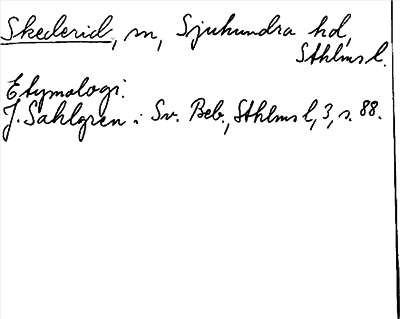 Skederid, sn, Sjuhundra hd,
Sthlms l.
Etymologi:
J. Sahlgren i Sv. Beb., Sthlms l, 3, s. 88.